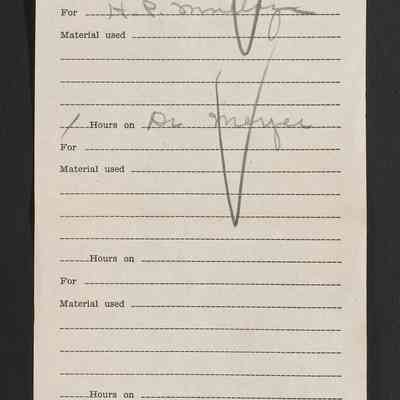 For H. P.
Material used
/ Hours on Dr Meyer
For
Material used
Hours on
For
Material used
Hours on